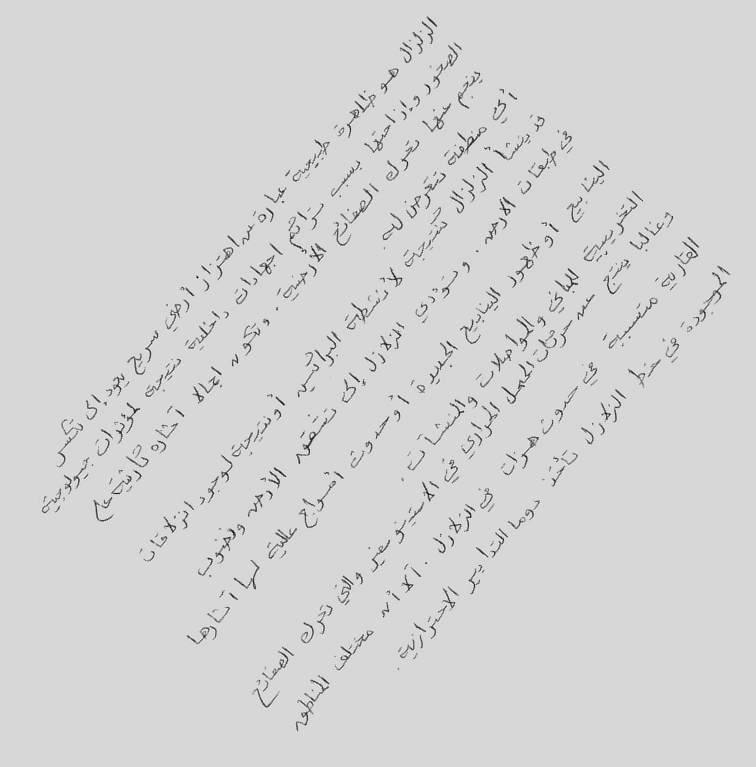 الزلزال هو ظاهرة طبيعية عبارة عن اهتزاز أرضي سريع يعود إلى تكسر
الصخور وإزاحتها بسبب تراكم اجهادات داخلية نتيجة لمؤثرات جيولوجية
ينجم عنها تحرك الصفائح الأرضية . وتكون اجمالا آثاره كارثية على
أي منطقة تتعرض له.
قد ينشأ الزلزال كنتيجة لأنشطة البراكين أو نتيجة لوجود انزلاقات
في طبقات الارض . وتؤدي الزلازل إلى تشقق الأرض ونضوب
الينابيع أو ظهور الينابيع الجديدة أو حدوث أمواج عالية لها آثارها
التخريبية للمباني والمواصلات والمنشآت .
وغالبا ينتج عن حركات الحمل الحراري في الاستينوسفير والتي تحرك الصفائح
القارية متسببة في حدوث هزات في الزلازل . الا أن مختلف المناطق
الموجودة في خط الزلازل تأخذ دوما التدابير الاحترازية .